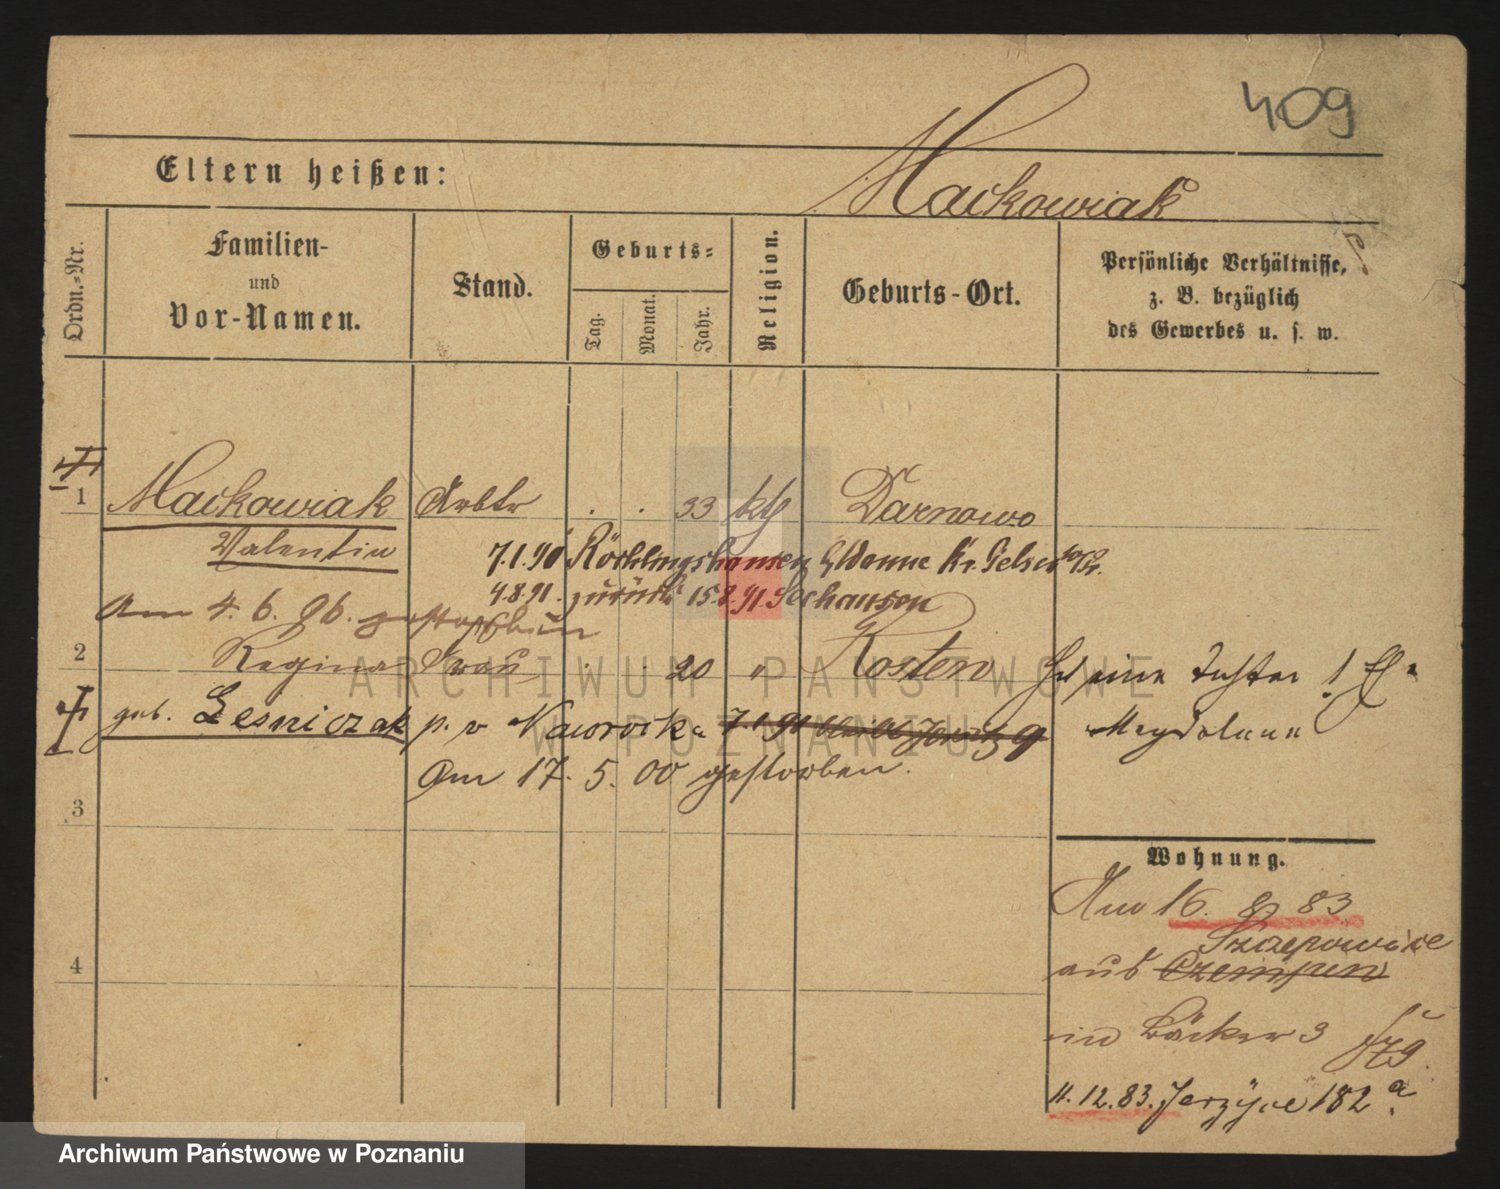 409
Eltern heißen:
Mackowiak
Ordn.-Nr.
Familien-
und
Vor-Namen.
Stand.
Geburts-
Tag.
Monat.
Jahr.
Religion.
Geburts-Ort.
Persönliche Verhältnisse,
z. B. bezüglich
des Gewerbes u. s. w.
1 Mackowiak Arbtr . . 33 kth Darnowo
Valentin
7.1.90 Röhlinghausen b/Wanne Kr. Gelsen
4.8.91. zurück 15.8.91. Seehausen
Am 4. 6. 96. gestorben
2 Regina Frau . . 20 " Kosten
geb. Lesniczak p. v Nawrocka 7.1.91
Am 17. 5. 00 gestorben.
eine Tochter
Magdalena
3
4
Wohnung.
Am 16. 8 83
Szczepowice
aus Czempin
in Bäcker 3
11.12.83. Jerzyce 182a.
ARCHIWUM PAŃSTWOWE
W POZNANIU
Archiwum Państwowe w Poznaniu